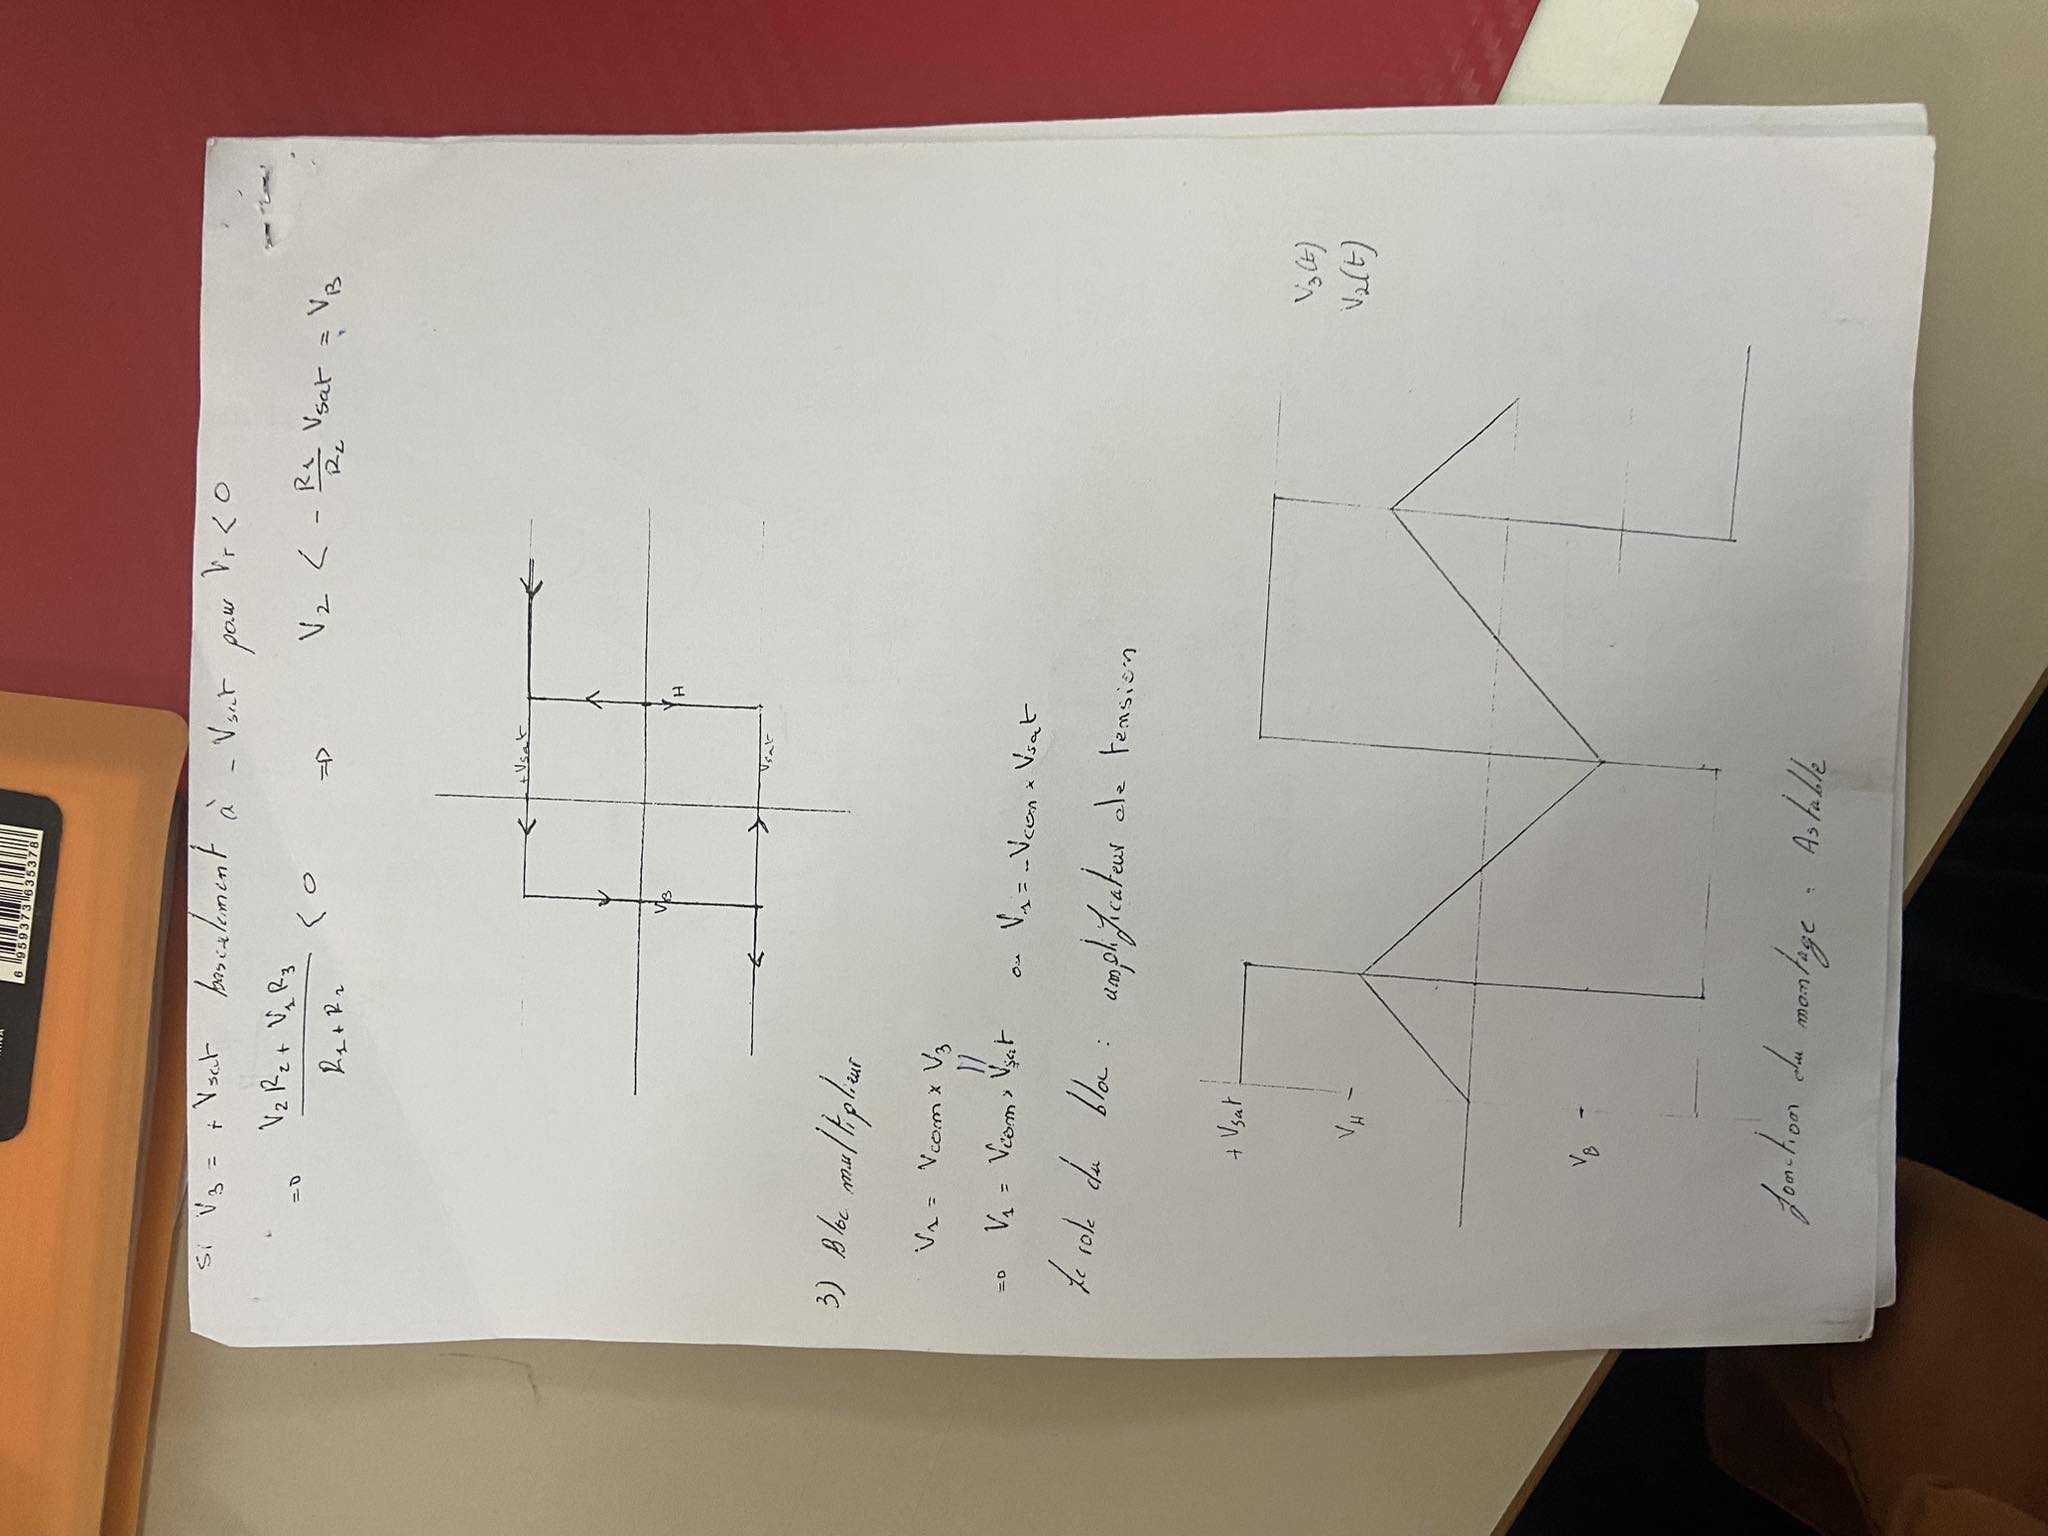 6 959373 635378
si V3 = + Vsat basculement à - Vsat pour Vr < 0
=> (V2 R2 + V1 R3) / (R1 + R2) < 0 => V2 < - R1/R2 Vsat = VB
+Vsat
VB
VH
Vsat
3) Bloc multiplieur
V1 = Vcom x V3
||
=> V1 = Vcom x Vsat ou V1 = -Vcom x Vsat
Le role du bloc : amplificateur de tension
+ Vsat
V3(t)
VH
V2(t)
VB
fonction du montage = Astable